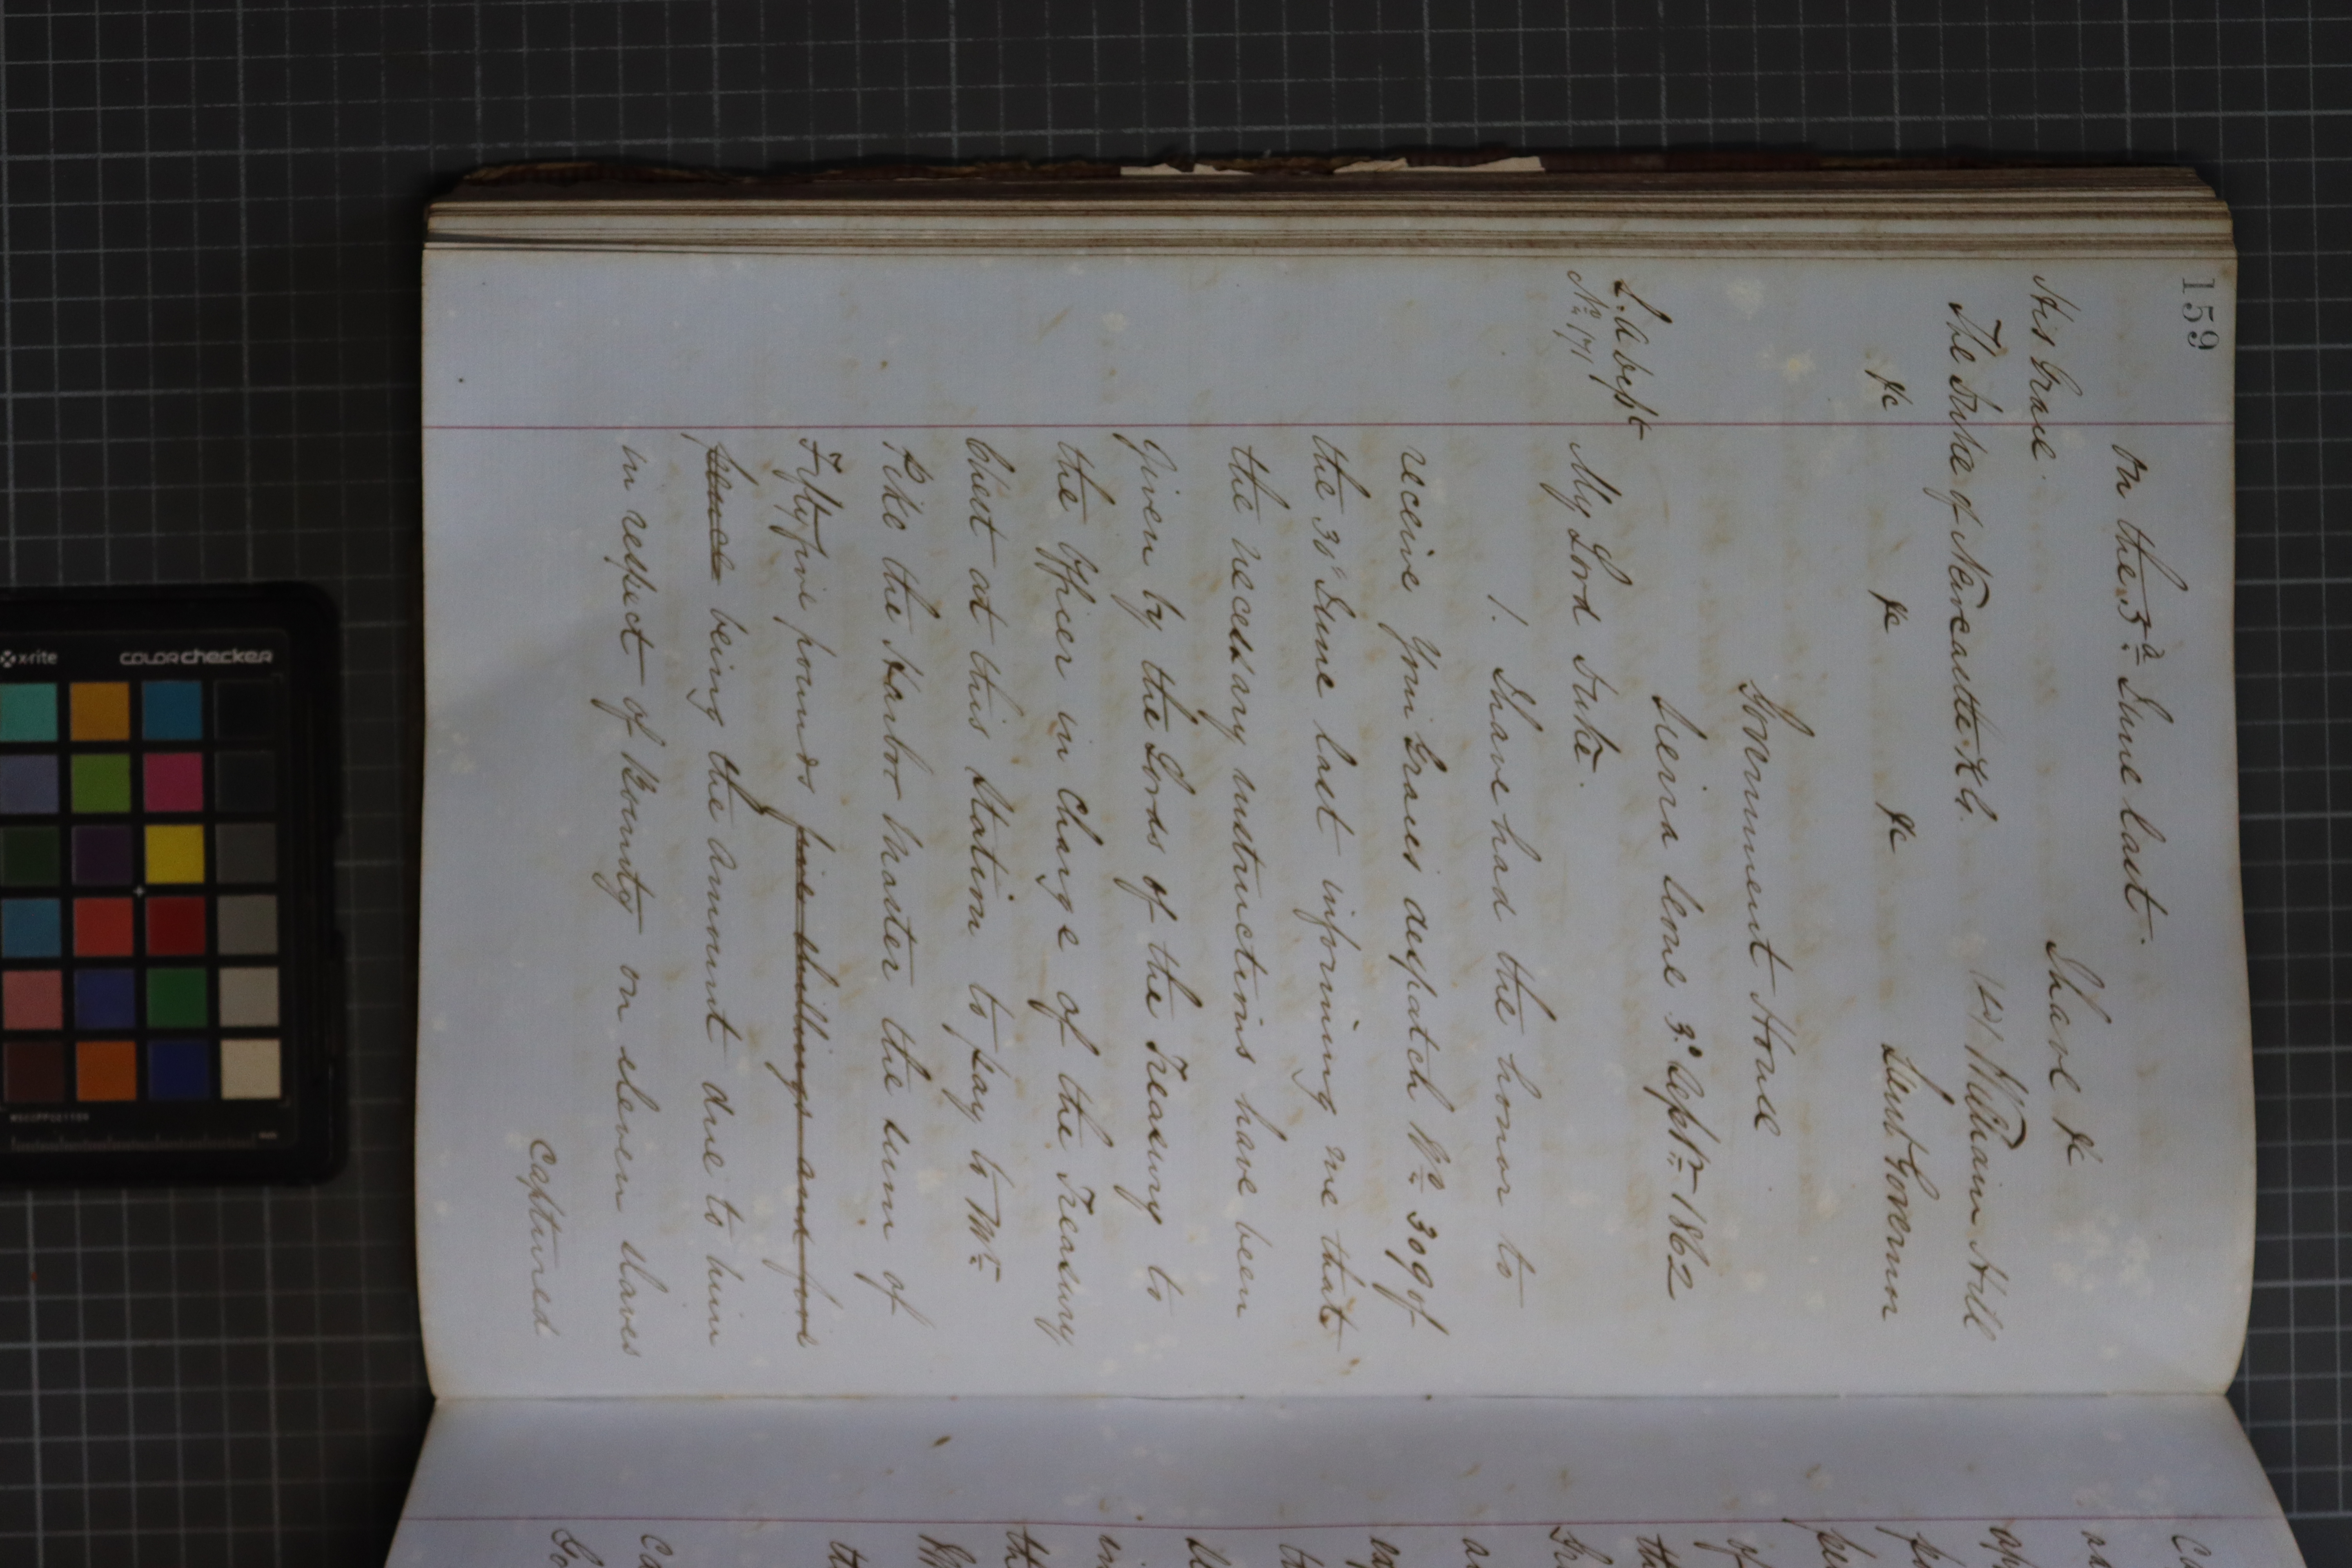 159
on the 5.ᵈ June last.
I have &c
His Grace
(Sd) William Hill
The Duke of Newcastle K.G.
Lieut Governor
&c &c &c
Government House
Sierra Leone 3.ᵈ Septʳ 1862
No 171
My Lord Duke.
1. I have had the honor to
receive Your Graces despatch No 309 of
the 30 June last informing me that
the necessary instructions have been
given by the Lords of the Treasury to
the Officer in Charge of the Treasury
Chest at this Station to pay to Mr
Pike the Harbor Master the sum of
Fifty five pounds five shillings and five
pence being the amount due to him
in respect of Bounty on eleven slaves
captured
x-rite
colorchecker